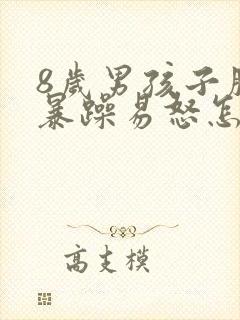 8歲男孩子
暴躁易怒怎
高支模